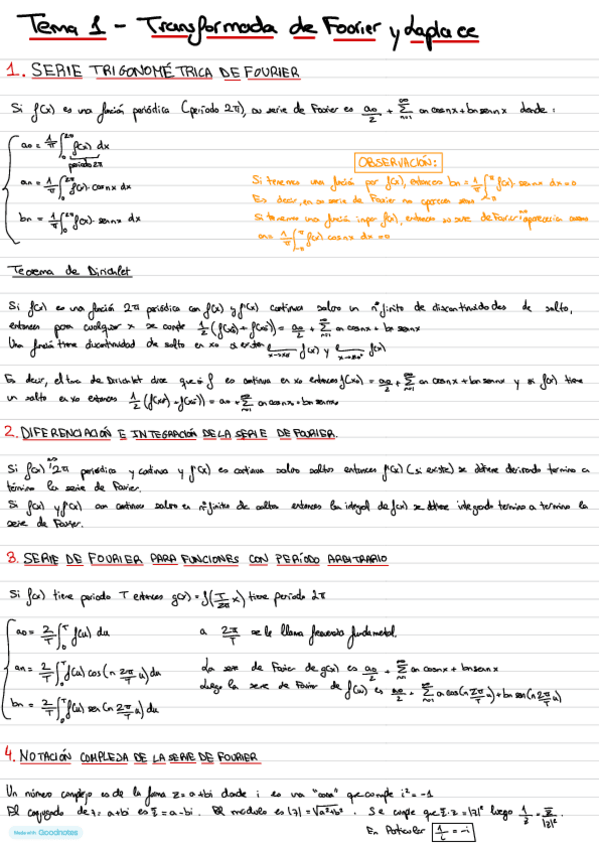 Tema 1 - Transformada de Fourier y Laplace
1. SERIE TRIGONOMÉTRICA DE FOURIER
Si f(x) es una función periódica (periodo 2π), su serie de Fourier es a₀/2 + ∑ₙ₌₁^∞ an cosnx + bn sennx donde:
a₀ = 1/π ∫₀^2π f(x) dx
periodo 2π
an = 1/π ∫₀^2π f(x)· cosnx dx
bn = 1/π ∫₀^2π f(x)· sennx dx
OBSERVACIÓN:
Si tenemos una función par f(x), entonces bn = 1/π ∫ f(x)· sennx dx = 0
Es decir, en su serie de Fourier no aparecen senos
Si tenemos una función impar f(x), entonces su serie de Fourier aparecerán
an = 1/π ∫ f(x) cosnx dx = 0
Teorema de Dirichlet
Si f(x) es una función 2π periódica con f(x) y f'(x) continua salvo un nº finito de discontinuidades de salto,
entonces para cualquier x se cumple 1/2 (f(x₀⁺) + f(x₀⁻)) = a₀/2 + ∑ₙ₌₁^∞ an cosnx + bn sennx
Una función tiene discontinuidad de salto en x₀ si existen f(x) y f(x)
Es decir, el tma de Dirichlet dice que si f es continua en x₀ entonces f(x₀) = a₀/2 + ∑ₙ₌₁^∞ an cosnx + bn sennx y si f(x) tiene
un salto en x₀ entonces 1/2 (f(x₀⁺) + f(x₀⁻)) = a₀ + ∑ₙ₌₁^∞ an cosnx + bn sennx
2. DIFERENCIACIÓN E INTEGRACIÓN DE LA SERIE DE FOURIER.
Si f(x) es 2π periódica y continua y f'(x) es continua salvo saltos entonces f'(x) (si existe) se obtiene derivando termino a
término la serie de Fourier.
Si f(x) y f'(x) son continuas salvo en nº finito de saltos entonces la integral de f(x) se obtiene integrando termino a termino la
serie de Fourier.
3. SERIE DE FOURIER PARA FUNCIONES CON PERÍODO ARBITRARIO
Si f(x) tiene periodo T entonces g(x) = f(T/2π x) tiene periodo 2π
a₀ = 2/T ∫₀^T f(u) du
an = 2/T ∫₀^T f(u) cos(n 2π/T u) du
bn = 2/T ∫₀^T f(u) sen(n 2π/T u) du
a 2π/T se le llama frecuencia fundamental.
La serie de Fourier de g(x) es a₀/2 + ∑ₙ₌₁^∞ an cosnx + bn sennx
Luego la serie de Fourier de f(u) es a₀/2 + ∑ₙ₌₁^∞ an cos(n 2π/T u) + bn sen(n 2π/T u)
4. NOTACIÓN COMPLEJA DE LA SERIE DE FOURIER
Un número complejo es de la forma z = a+bi donde i es una "cosa" que cumple i² = -1
El conjugado de z = a+bi es z̄ = a-bi. El modulo es |z| = √a²+b². Se cumple que z̄·z = |z|² luego 1/z = z̄/|z|²
En Particular 1/i = -i
Made with Goodnotes